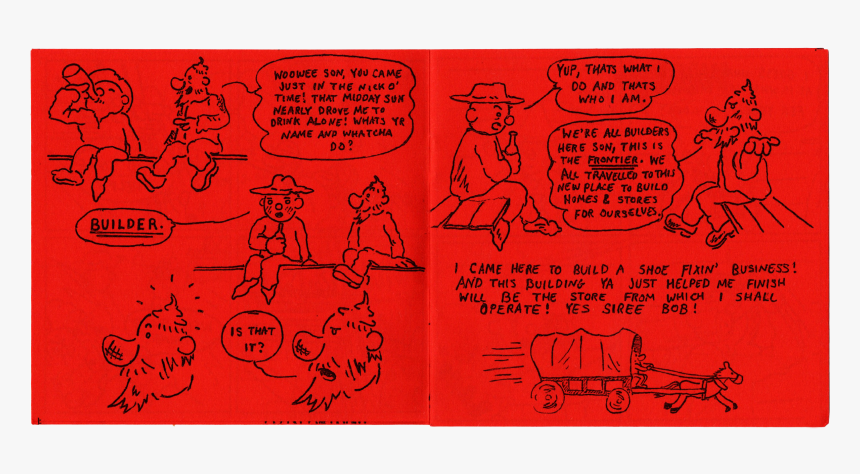 WOOWEE SON, YOU CAME
JUST IN THE NICK O'
TIME! THAT MIDDAY SUN
NEARLY DROVE ME TO
DRINK ALONE! WHATS YR
NAME AND WHATCHA
DO?
BUILDER.
IS THAT
IT?
YUP, THATS WHAT I
DO AND THATS
WHO I AM.
WE'RE ALL BUILDERS
HERE SON, THIS IS
THE FRONTIER. WE
ALL TRAVELLED TO THIS
NEW PLACE TO BUILD
HOMES & STORES
FOR OURSELVES.
I CAME HERE TO BUILD A SHOE FIXIN' BUSINESS!
AND THIS BUILDING YA JUST HELPED ME FINISH
WILL BE THE STORE FROM WHICH I SHALL
OPERATE! YES SIREE BOB!